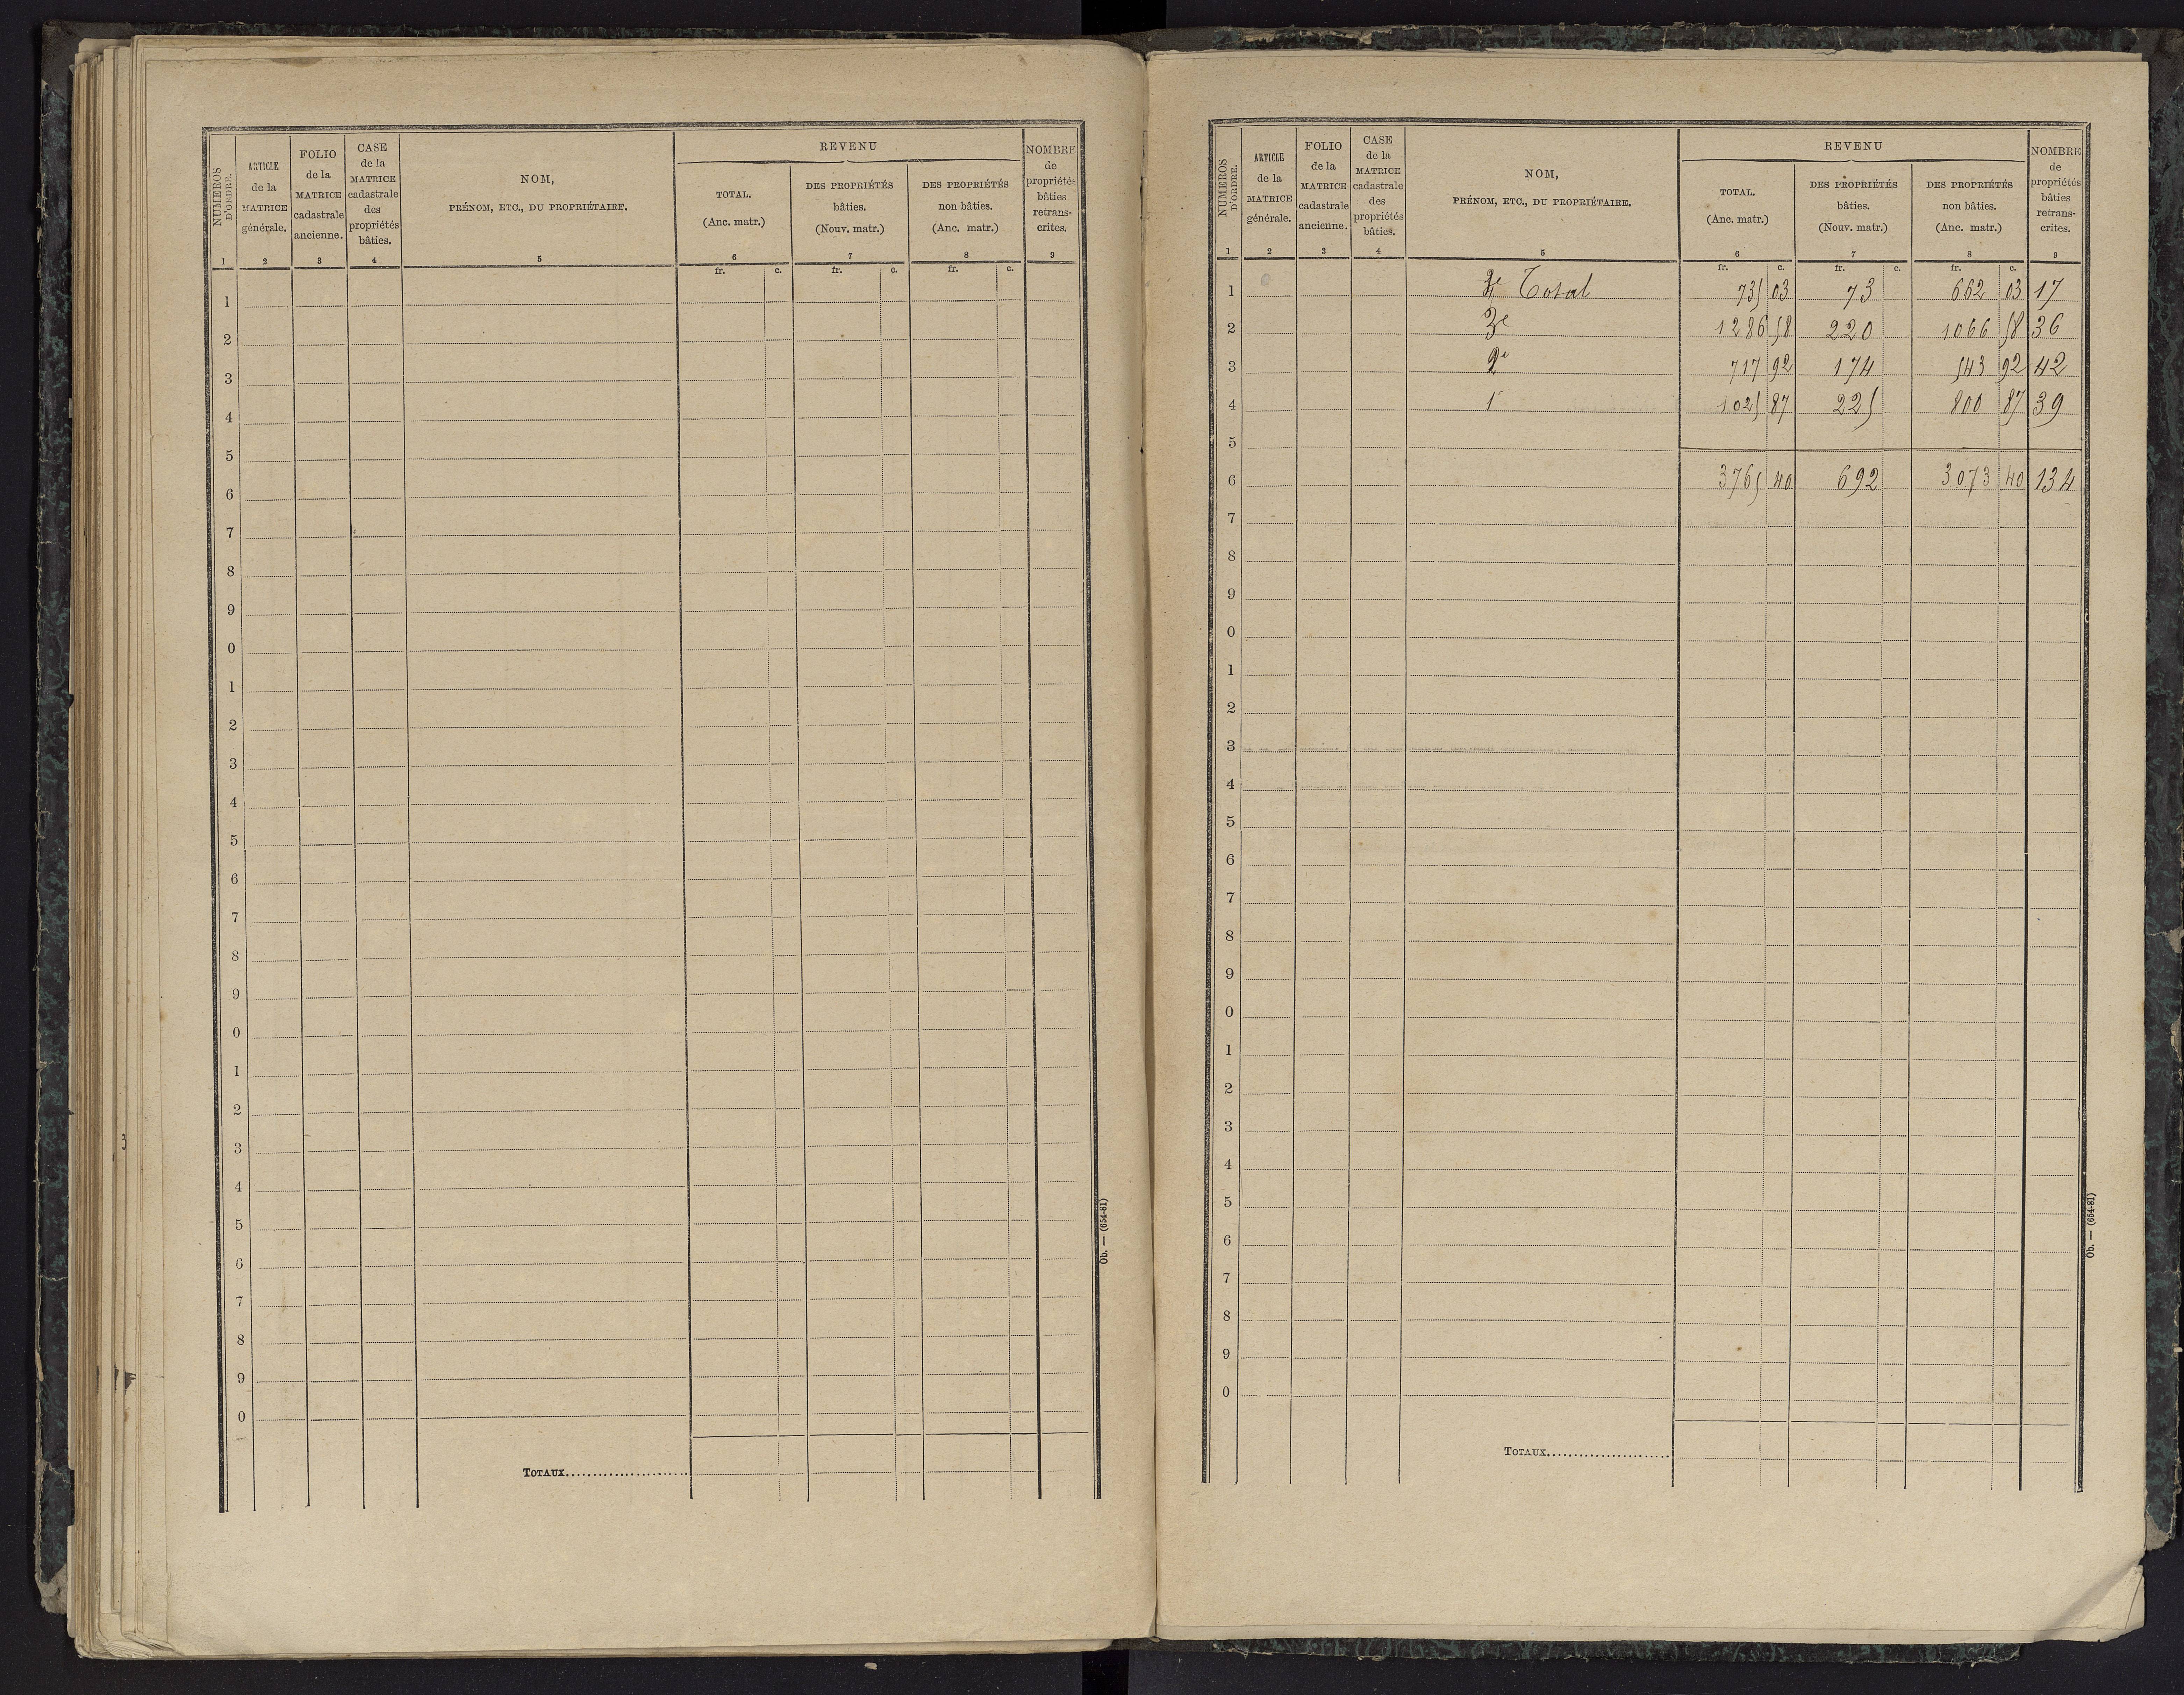 NUMEROS D'ORDRE.
ARTICLE de la MATRICE générale.
FOLIO de la MATRICE cadastrale ancienne.
CASE de la MATRICE cadastrale des propriétés bâties.
NOM,
PRÉNOM, ETC., DU PROPRIÉTAIRE.
REVENU
TOTAL.
(Anc. matr.)
DES PROPRIÉTÉS
bâties.
(Nouv. matr.)
DES PROPRIÉTÉS
non bâties.
(Anc. matr.)
NOMBRE de propriétés bâties retrans- crites.
1 2 3 4 5 6 7 8 9
fr. c. fr. c. fr. c.
1
2
3
4
5
6
7
8
9
0
1
2
3
4
5
6
7
8
9
0
1
2
3
4
5
6
7
8
9
0
TOTAUX
Ob. — (654-81)
NUMEROS D'ORDRE.
ARTICLE de la MATRICE générale.
FOLIO de la MATRICE cadastrale ancienne.
CASE de la MATRICE cadastrale des propriétés bâties.
NOM,
PRÉNOM, ETC., DU PROPRIÉTAIRE.
REVENU
TOTAL.
(Anc. matr.)
DES PROPRIÉTÉS
bâties.
(Nouv. matr.)
DES PROPRIÉTÉS
non bâties.
(Anc. matr.)
NOMBRE de propriétés bâties retrans- crites.
1 2 3 4 5 6 7 8 9
fr. c. fr. c. fr. c.
1 Total 735 03 73 662 03 17
2 3e 1286 58 220 1066 58 36
3 2e 717 92 174 543 92 42
4 1r 1025 87 225 800 87 39
5
6 3765 40 692 3073 40 134
7
8
9
0
1
2
3
4
5
6
7
8
9
0
1
2
3
4
5
6
7
8
9
0
TOTAUX
Ob. — (654-81)